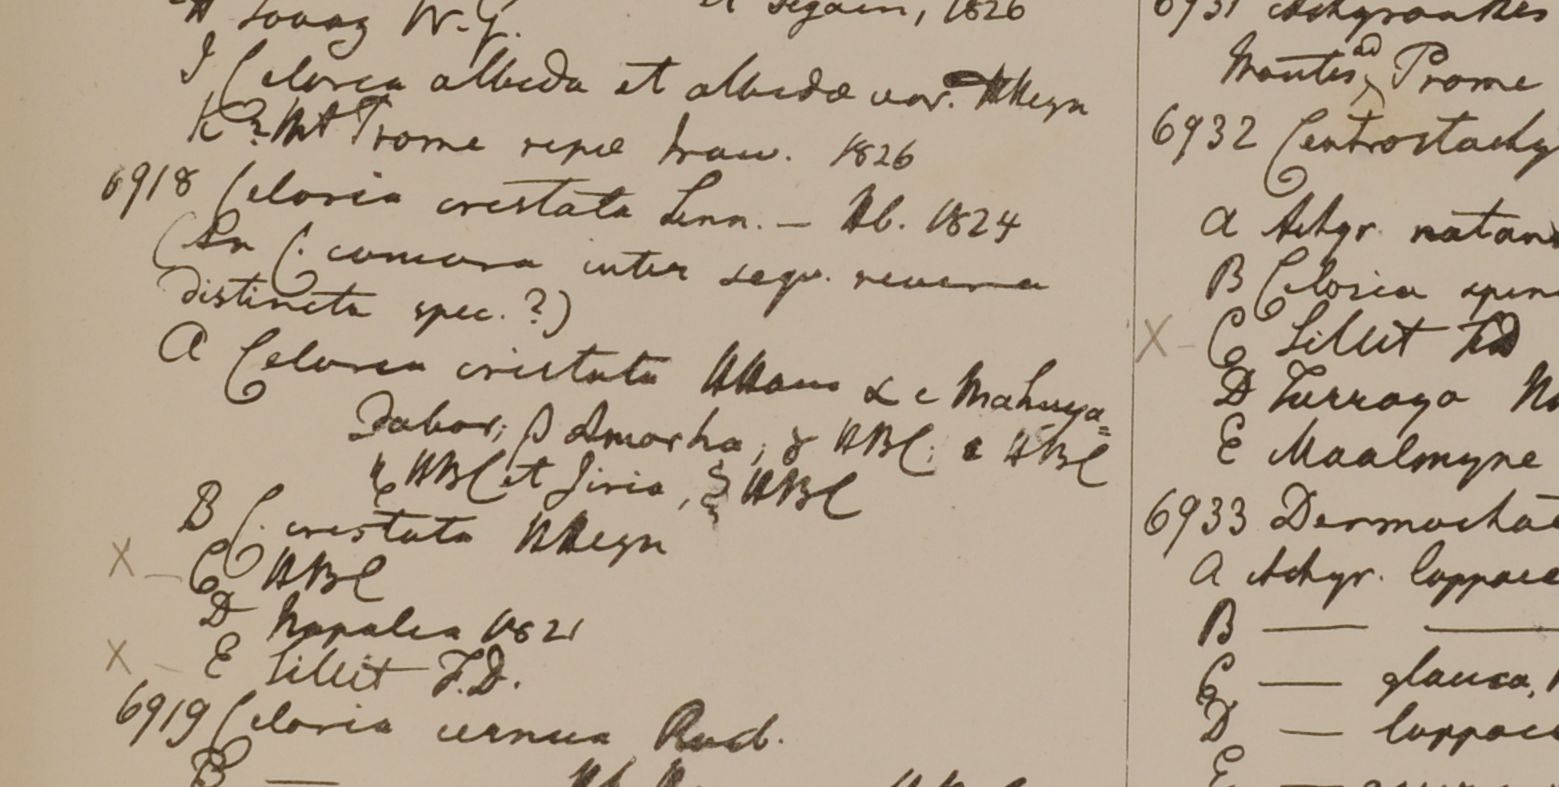 H Tavoy W.G. et Segain, 1826
I Celosia albida et albida var. HHeyn
K ? Mt Prome ripae Iraw. 1826
6918 Celosia cristata Linn. — Hb. 1824
(An C. comosa inter sequ. revera
distincta spec. ?)
A Celosia cristata HHam α e Mahuya=
Dabor; β Amorha; γ HBC; ε HBC
η HBC et Jiria, ξ HBC
B C. cristata HHeyn
X – C HBC
D Napalia 1821
X – E Sillet F.D.
6919 Celosia cernua Roxb.
B —
6931 Achyranthes
Montes ad Prome
6932 Centrostachy
A Achyr. natans
B Celosia spin
X – C Sillet FD
D Turraya
E Maalmyne
6933 Desmochae
A Achyr. lappace
B — —
C — glauca,
D — lappac
E —